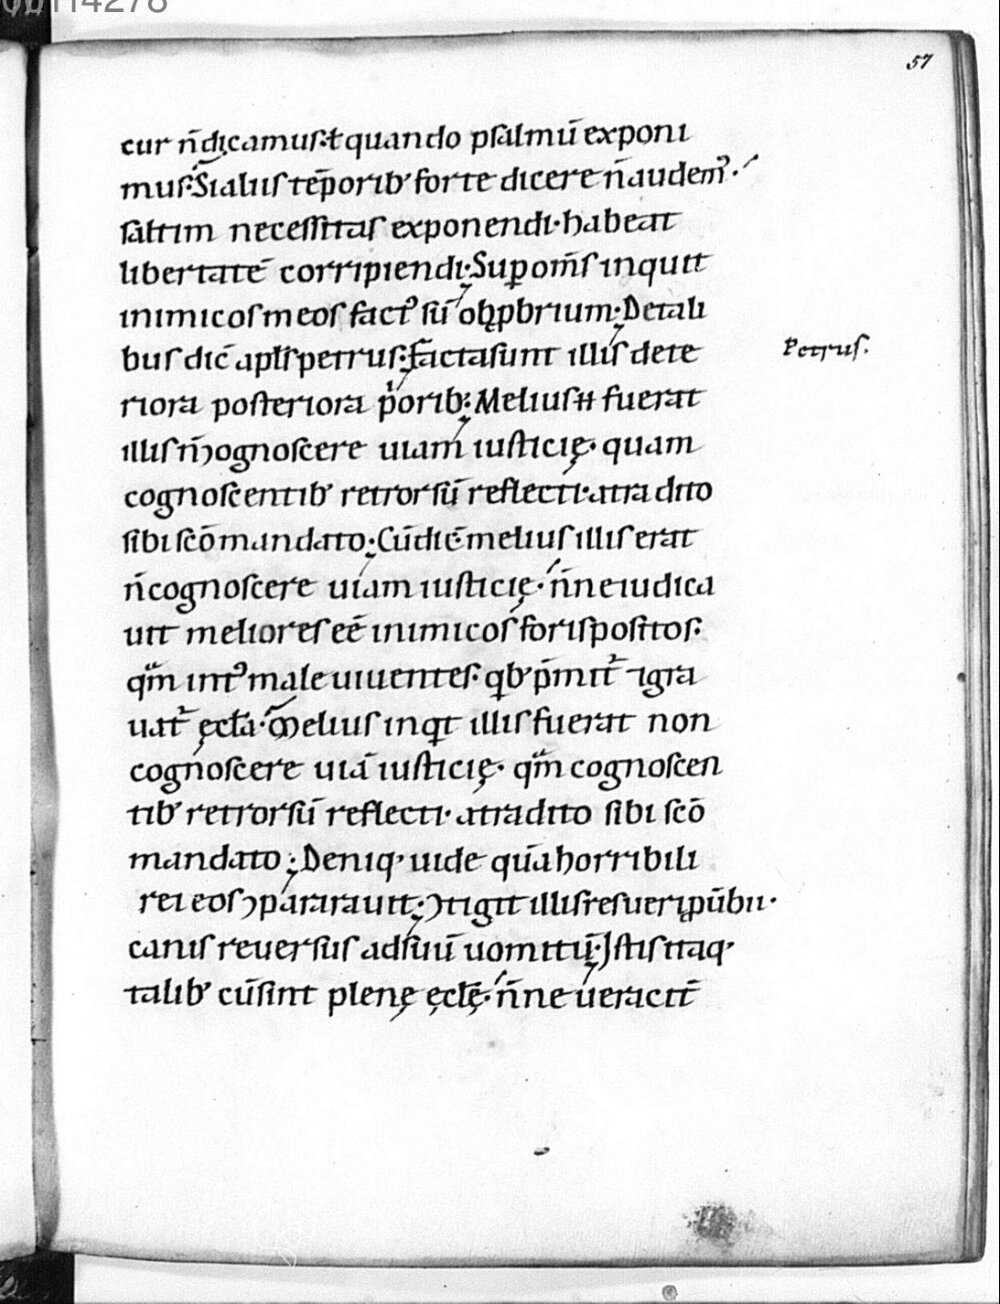 00114278
57
cur n̄ dicamus · ł quando psalmū exponi
mus · Si aliis tēporib' forte dicere n̄ audem᾽ ·
saltim necessitas exponendi · habeat
libertatē corripiendi; Sup om̄s inquit
inimicos meos fact᾽ sū obꝓbrium; De tali
bus dic̄ apl̄s petrus; facta sunt illis dete
Petrus.
riora posteriora p̍orib; Melius .n. fuerat
illis n̄ ↄgnoscere uiam iusticię · quam
cognoscentib' retrorsū reflecti · a tradito
sibi sc̄o mandato; Cū dic̄ melius illis erat
n̄ cognoscere uiam iusticię · n̄ne iudica
uit meliores eē inimicos foris positos ·
qm̄ int᾽ male uiuentes · qb' p̄mit᷑ ⁊ gra
uat᷑ ęcl̄a · Melius inqt illis fuerat non
cognoscere uiā iusticię · qm̄ cognoscen
tib' retrorsū reflecti · a tradito sibi sc̄o
mandato; Deniq' uide quā horribili
rei eos ↄpararauit; Ↄtigit illis res ueri ꝓūbii ·
canis reuersus ad suū uomitū; Istis itaq'
talib' cū sint plenę ęclę̄ · n̄ne ueracit᷑